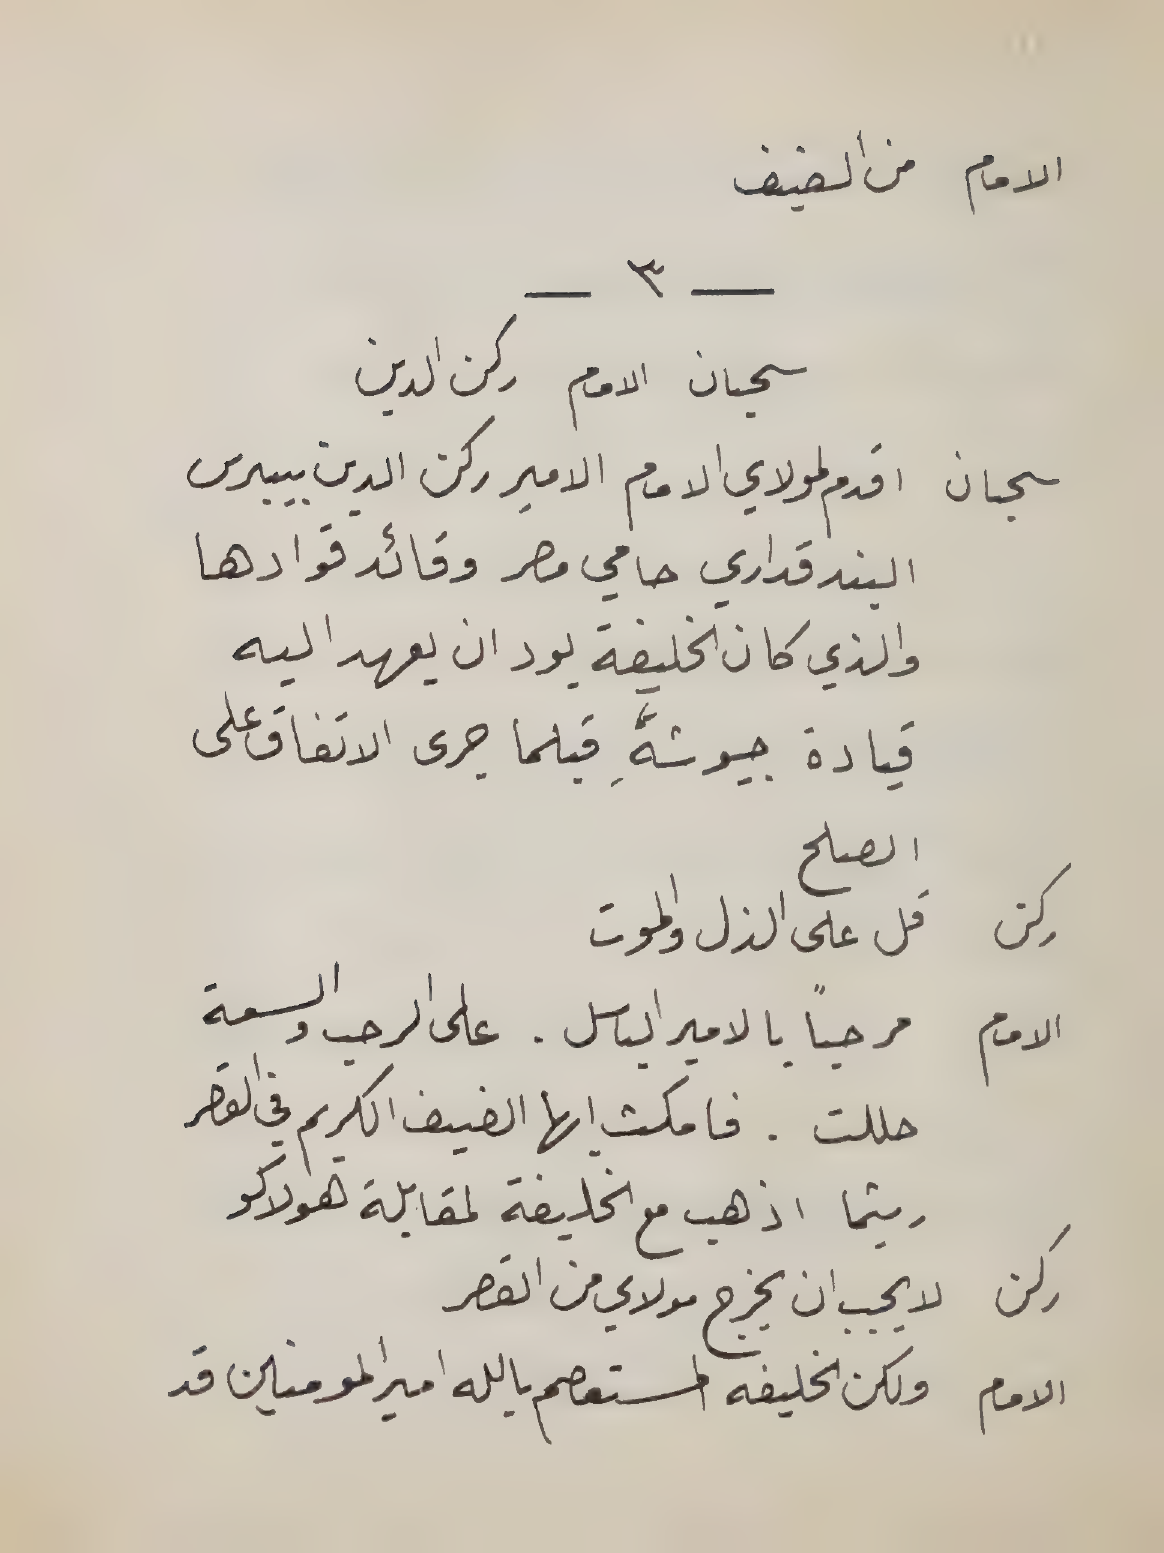 الامام من الضيف
— ٣ —
سحبان الامام ركن الدين
سحبان اقدم لمولاي الامام الامير ركن الدين بيبرس
البندقداري حامي مصر وقائد قوادها
والذي كان الخليفة يود ان يعهد اليه
قيادة جيوشهِ قبلما جرى الاتفاق على
الصلح
ركن قل على الذل والموت
الامام مرحباً بالامير الباسل . على الرحب والسعة
حللت . فامكث ايها الضيف الكريم في القصر
ريثما اذهب مع الخليفة لمقابلة هولاكو
ركن لا يجب ان يخرج مولاي من القصر
الامام ولكن الخليفه المستعصم بالله امير المومنين قد